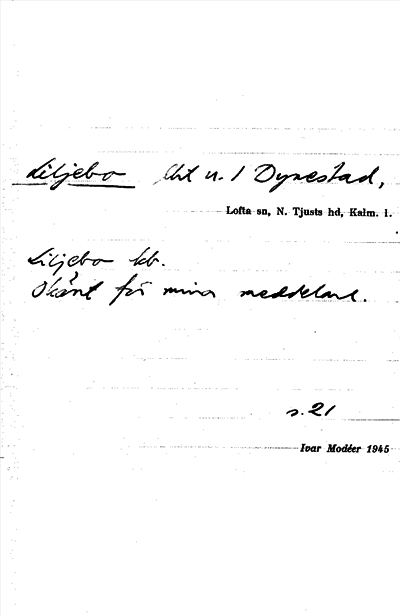 Liljebo lht u. 1 Dynestad,
Lofta sn, N. Tjusts hd, Kalm. l.
Liljebo kb.
Okänt för mina meddelare.
s. 21
Ivar Modéer 1945